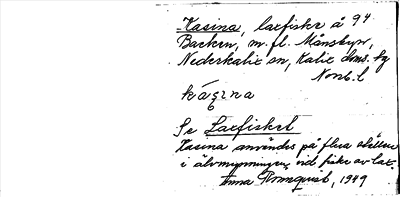 Kasina, laxfiske å 94
Backen, m. fl. Månsbyn,
Nederkalix sn, Kalix doms. hg
Norrb. l
Se Laxfisket
Kasina användes på flera ställen
i älvmynningen, vid fiske av lax.
Anna 1949